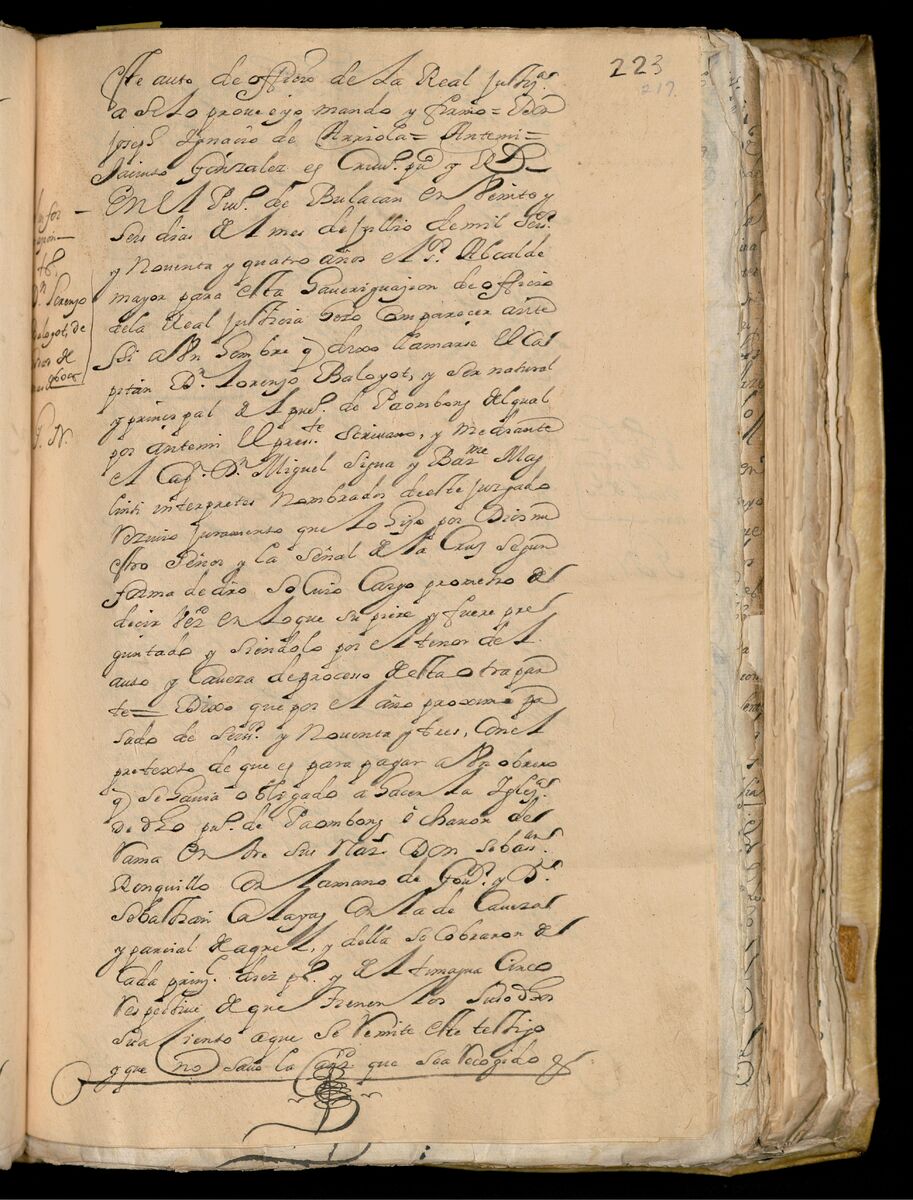 223
217
este auto de officio de la Real Justizª
assi lo proveyo mando y firmo = Don
Joseph Ygnacio de Arriola = Antemi =
Jacinto Gonzalez es
En el Pueº. de Bulacan en Veinte y
seis dias del mes de Jullio de mil seisº.
y Noventa y quatro años el sr. Alcalde
mayor para esta haveriguazion de officio
dela Real Justicia hizo comparecer ante
si a Un hombre q dixo llamarse el Ca
pitan Dn. Lorenzo Baloyot, y ser natural
y principal del pueº. de Paombong del qual
por antemi el press.te scrivano, y mediante
el Capn. Dn. Miguel Sigua y Barme Mag
linti interpretes Nombrados deeste Juzgado
Reziuio Juramento que lo hizo por Dios nue
stro Señor y la señal de la Cruz segun
forma de dro so Cuio Cargo prometio de
decir Verd en loque supiere y fuere pre
guntado y siendolo por el tenor del
auto y Caveza de proceso de esta otra par
te = Dixo que por el año proximo pa
sado de seisº. y Noventa y tres, con el
pretexto de que es para pagar a Un obrero
q se havia obligado a hacer la Iglesª
de dho pueº. de Paombong echaron de
rrama entre sus Natˢ. Don Sebasn.
Ronquillo con la mano de Govr. y Dn.
Sebastian Calayag con la de Caveza
y parcial de aquel, y della se cobraron de
cada prinl. diez ps. y del timagua Cinco
respective de que tienen los susodhos
su a siento a que se Remite este testigo
y que no save la Cantd que sea recogido
Ynfor
mazion
tº.
Dn Lorenzo
Baloyot, de
años de